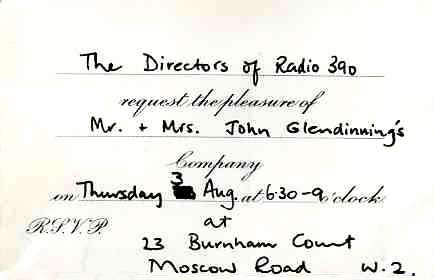 The Directors of Radio 390
request the pleasure of
Mr. + Mrs. John Glendinning's
Company
on Thursday 3 Aug. at 6.30-9 o'clock
R.S.V.P. at
23 Burnham Court
Moscow Road W.2.